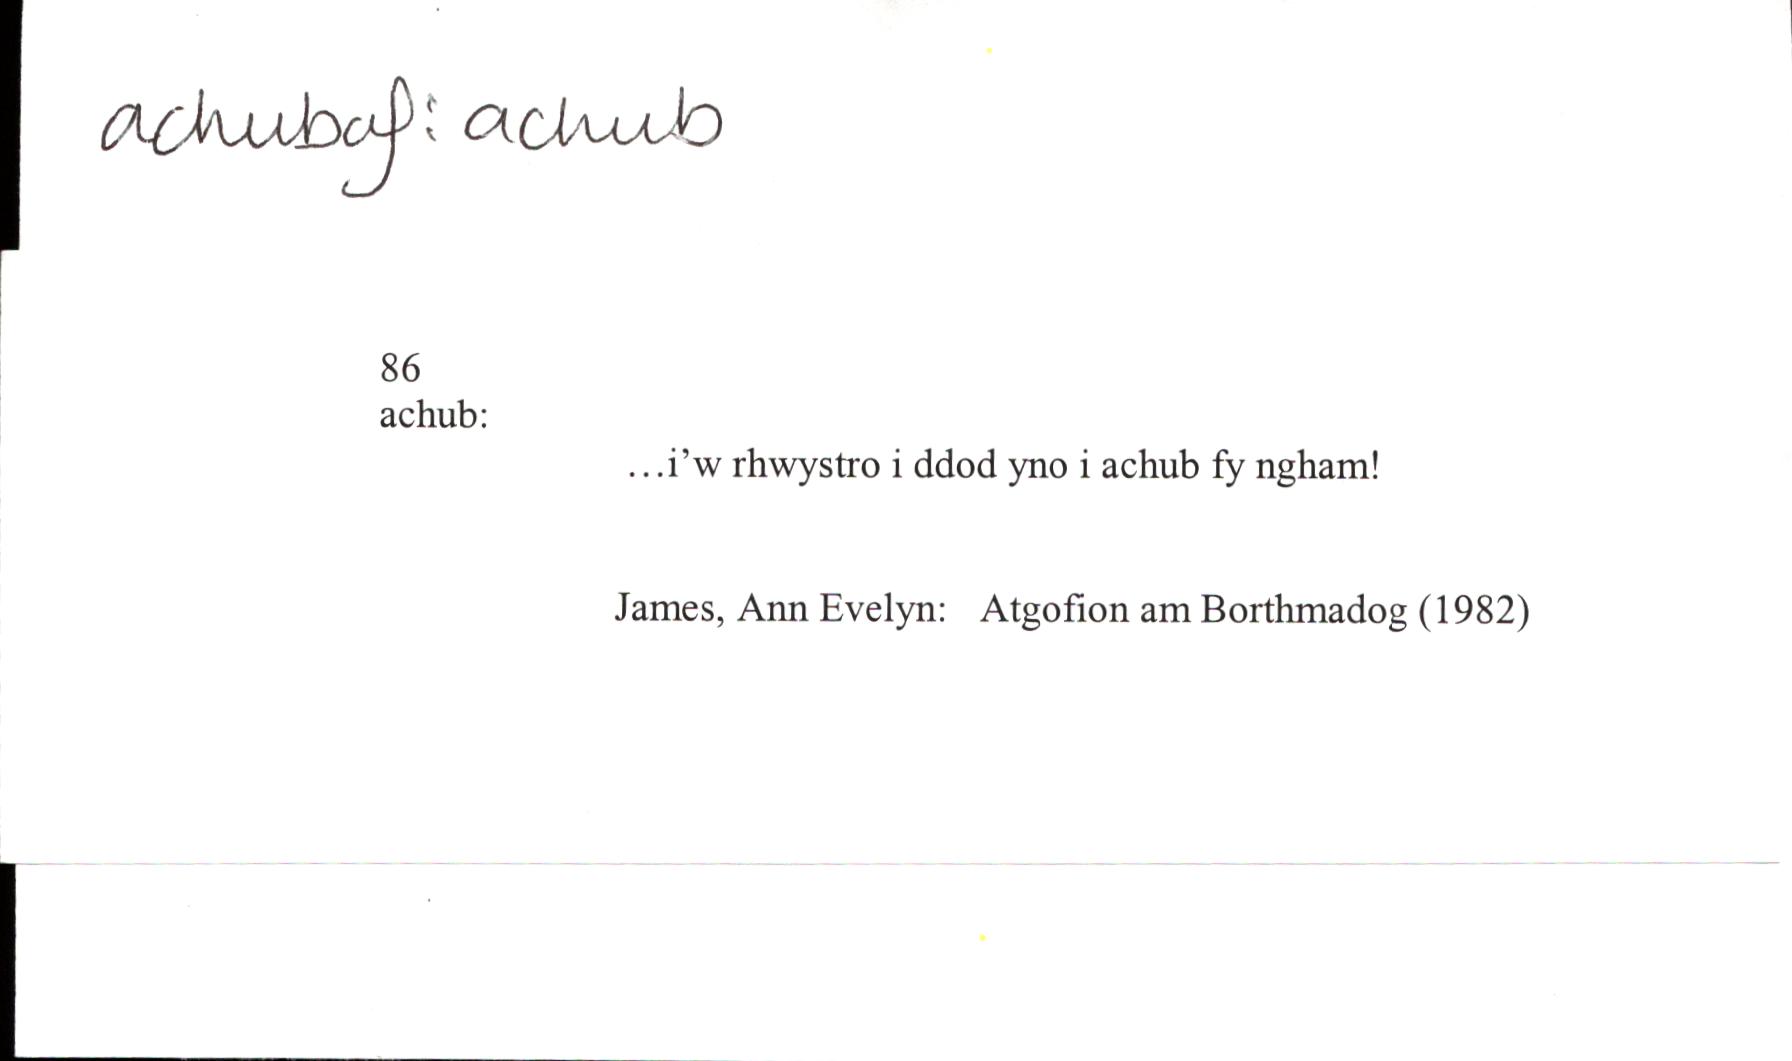 achubaf: achub
86
achub:
…i’w rhwystro i ddod yno i achub fy ngham!
James, Ann Evelyn: Atgofion am Borthmadog (1982)